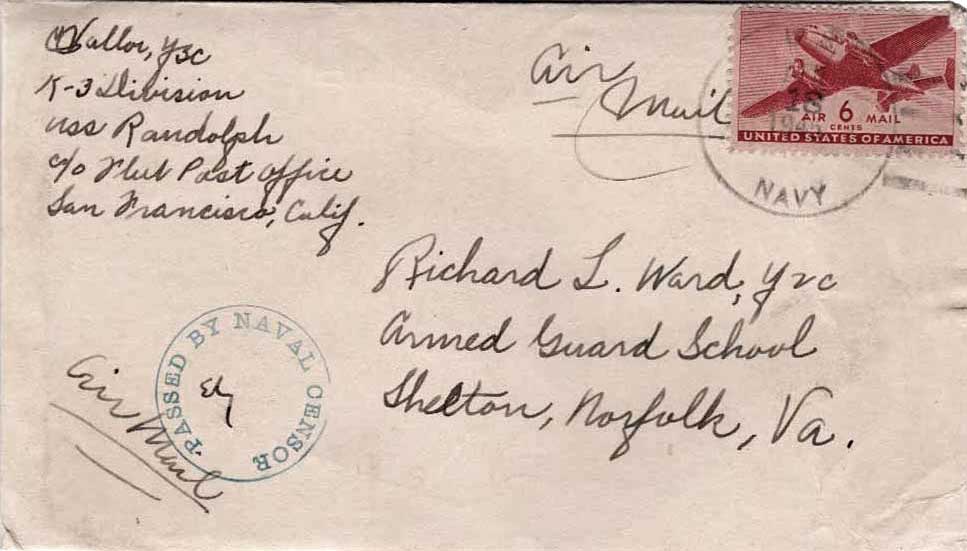 Vallor, Y3C
K-3 Division
USS Randolph
c/o Fleet Post Office
San Francisco, Calif.
Air
Mail
18
194
AIR 6 MAIL
CENTS
UNITED STATES OF AMERICA
NAVY
Richard L. Ward, Y2C
Armed Guard School
Shelton, Norfolk, Va.
PASSED BY NAVAL CENSOR
Air Mail